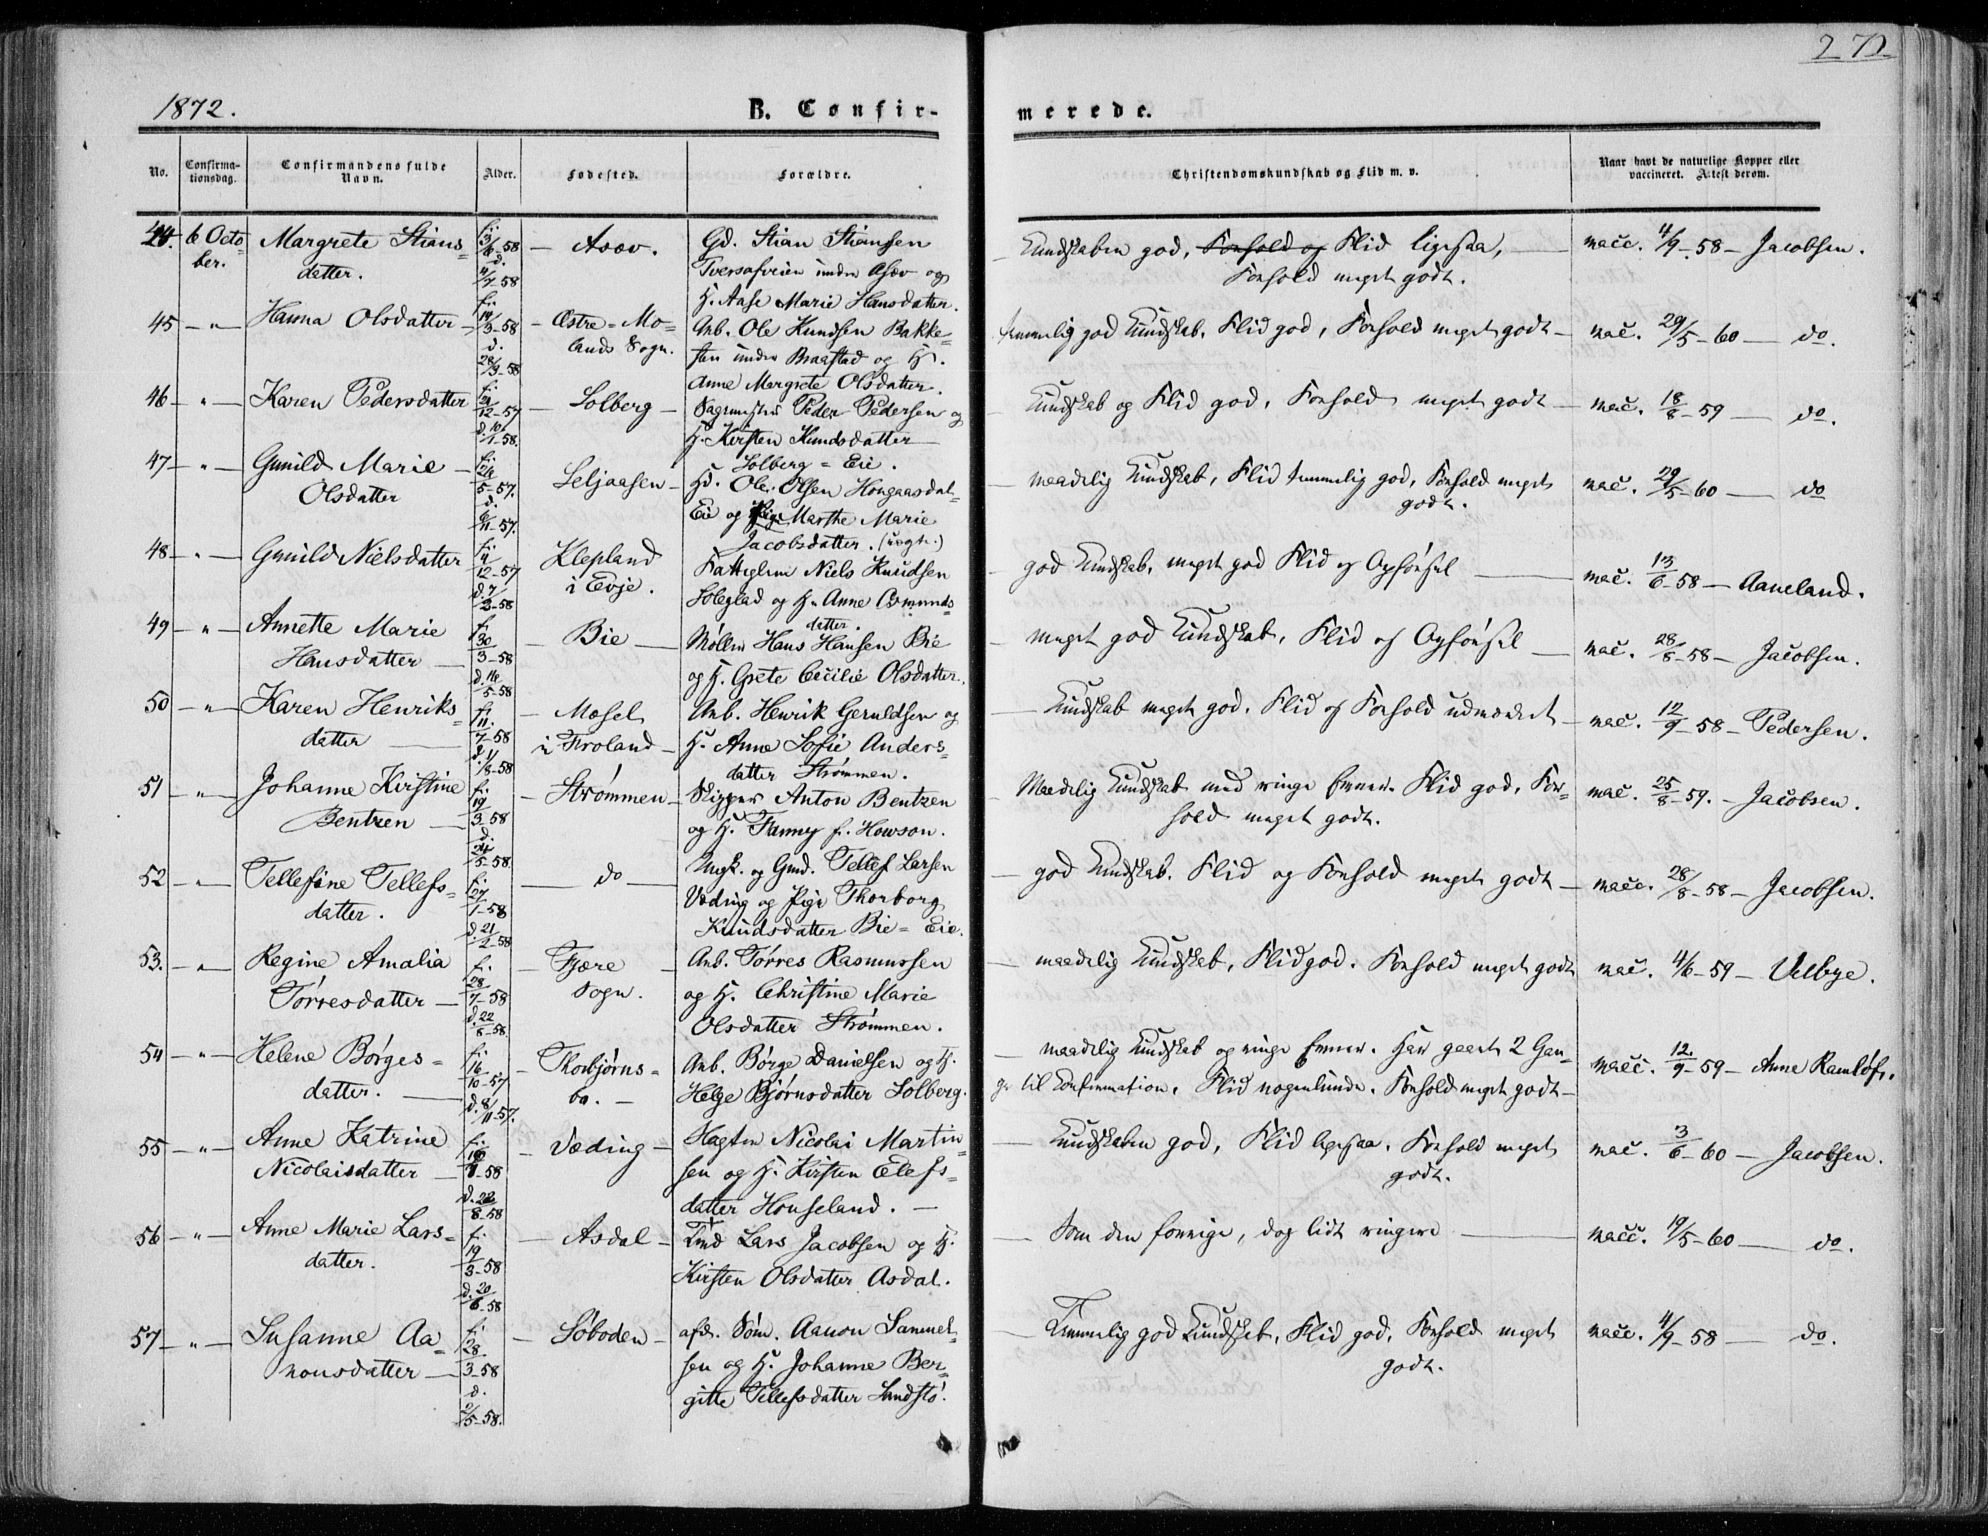 270
1872.
B. Confir-
merede.
No.
Confirma-
tionsdag.
Confirmandens fulde
Navn.
Alder.
Fødested.
Forældre.
Christendomskundskab og Flid m. v.
Naar havt de naturlige Kopper eller
vaccineret. Attest derom.
44 - 6 Octo
ber.
Margrete Stians
datter.
f.
3/6-58
d.
4/7 58
- Asæv.
Gd. Stian Stiansen
under Asæv og
H. Aase Marie Hansdatter.
Kundskaben god, Forhold og Flid ligesaa,
Forhold meget godt.
vacc. 4/9-58 - Jacobsen.
45 - " -
Hanna Olsdatter -
f.
14/3-58
d.
28/3-58
- Østre-Mo-
lands Sogn.
Arb. Ole Knudsen Bakke-
sten under Braastad og H.
Anne Margrete Olsdatter.
temmelig god Kundskab, Flid god, Forhold meget godt -
vac. 29/5-60 - do.
46 - " -
Karen Pedersdatter
f.
12-57
d. 10/1-58.
- Solberg -
Peder Pedersen og
H. Kirsten Knudsdatter
Solberg-Eie.
Kundskab og Flid god, Forhold meget godt -
vac. 18/8-59 - do.
47 - " -
Gunild Marie -
Olsdatter
f.
5-57.
d.
6/11-57.
Seljaasen -
Gd. Ole Olsen Hougaasdal-
Eie og Pige Marthe Marie
Jacobsdatter. (uægte.)
- maadelig Kundskab, Flid temmelig god, Forhold meget
godt.
vac. 29/5-60 - do
48 - " -
Gunild Nielsdatter
f.
11/12-57
d. 7/2-58
Klepland
i Evje.
Niels Knudsen
Soleglad og H. Anne Osmunds-
datter.
- god Kundskab, meget god Flid og Opførsel -
vac. 13/6-58 - Aaneland.
49 - " -
Annette Marie
Hansdatter -
f.
30/3-58
d. 16/5-58
- Bie -
Møller Hans Hansen Bie
og H. Grete Cecilie Olsdatter.
- meget god Kundskab, Flid og Opførsel -
vac. 28/8-58 - Jacobsen.
50 - " -
Karen Henriks-
datter -
f.
11/7-58
d. 11/8-58
- Mosel
i Froland -
Arb. Henrik Geruldsen og
H. Anne Sofie Anders-
datter Strømmen.
- Kundskab meget god. Flid og Forhold udmærket -
vac. 12/9-58 - Pedersen.
51 - " -
Johanne Kirstine
Bentzen -
f.
19/3-58
d.
24/5-58.
- Strømmen -
Skipper Anton Bentzen
og H. Fanny f. Howson.
- Maadelig Kundskab med ringe Evner. Flid god, For-
hold meget godt.
vac. 25/8-59. - Jacobsen.
52 - " -
Tellefine Tellefs-
datter.
f.
27/1-58
d. 21/2-58
- do -
Ungk. og Gmd. Tellef Larsen
Væding og Pige Thorborg
Knudsdatter Bie-Eie.
- god Kundskab. Flid og Forhold meget godt -
vacc. 28/8-58 - Jacobsen.
53. - " -
Regine Amalia
Tørresdatter -
f.
28/7-58
d. 22/8-58.
- Fjære -
Sogn.
Arb. Tørres Rasmussen
og H. Christine Marie
Olsdatter Strømmen.
- maadelig Kundskab, Flid god. Forhold meget godt
vac. 4/6-59 - Velbye.
54 - " -
Helene Børges-
datter. -
f.
16/10-57
d. 8/11-57.
- Thorbjørns-
bo. -
Arb. Børge Danielsen og H.
Helge Bjørnsdatter Solberg.
- maadelig Kundskab og ringe Evner. Har gaaet 2 Gan-
ge til Confirmation. Flid nogenlunde. Forhold meget godt -
vacc. 12/9-59 - Anne Ramløf.
55 - " -
Anne Katrine
Nicolaisdatter -
f.
-58
d. 22/8-58
- Væding -
Nicolai Martin
sen og H. Kirsten Elefs-
datter Houseland. -
- Kundskaben god, Flid ligesaa. Forhold meget
godt.
vac. 3/6-60 - Jacobsen.
56 - " -
Anne Marie Lars-
datter.
f.
19/3-58
d. 20/6-58
- Asdal -
Lars Jacobsen og H.
Kirsten Olsdatter Asdal.
- Som den forrige, dog lidt ringere -
vacc. 19/5-60 - do.
57 - " -
Susanne Aa-
nonsdatter -
f.
28/3-58
d.
/5-58.
- Søboden -
afd. Søm. Aanon Sammel-
sen og H. Johanne Ber-
gitte Tellefsdatter Sandstø.
- Temmelig god Kundskab, Flid god, Forhold meget
godt.
vacc. 4/9-58 - do.